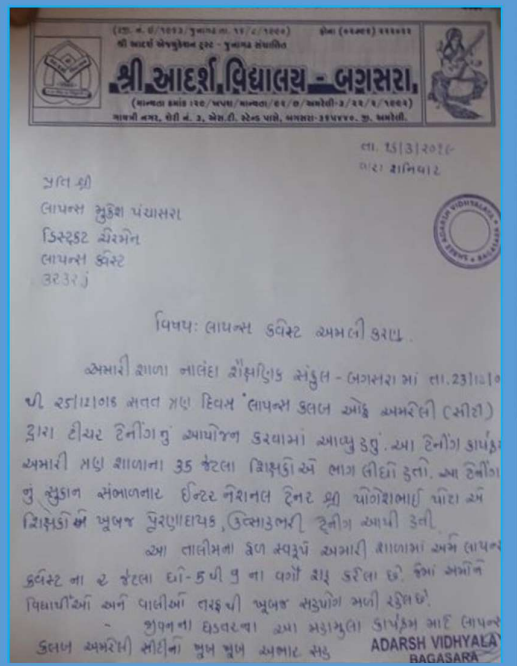 શ્રી આદર્શ એજ્યુકેશન ટ્રસ્ટ - જુનાગઢ સંચાલિત
શ્રી આદર્શ વિદ્યાલય - બગસરા.
ગાયત્રી નગર, શેરી નં. ૩, એસ.ટી. સ્ટેન્ડ પાસે, બગસરા-૩૬૫૪૪૦. જી. અમરેલી.
શનિવાર
પ્રતિ શ્રી
લાયન્સ મુકેશ પંચાસરા
ડિસ્ટ્રીકટ ચેરમેન
લાયન્સ ક્વેસ્ટ
વિષય: લાયન્સ ક્વેસ્ટ અમલીકરણ.
અમારી શાળા નાલંદા શૈક્ષણિક સંકુલ - બગસરા માં તા.
થી સતત ત્રણ દિવસ લાયન્સ કલબ ઓફ અમરેલી (સીટી)
દ્વારા ટીચર ટ્રેનીંગનું આયોજન કરવામાં આવ્યુ હતુ. આ ટ્રેનીંગ
અમારી ત્રણ શાળાના 35 જેટલા શિક્ષકો એ ભાગ લીધો હતો. આ ટ્રેનીંગ
નું સુકાન સંભાળનાર ઈન્ટરનેશનલ ટ્રેનર શ્રી યોગેશભાઈ પોટા એ
શિક્ષકોને ખૂબજ પ્રેરણાદાયક, ઉત્સાહભરી ટ્રેનીંગ આપી હતી.
આ તાલીમના ફળ સ્વરૂપે અમારી શાળામાં અમે લાયન્સ
ક્વેસ્ટ ના જેટલા ધો-5 થી 9 ના વર્ગો શરૂ કરેલા છે. જેમાં અમોને
વિદ્યાર્થીઓ અને વાલીઓ તરફથી ખૂબજ સહયોગ મળી રહેલ છે.
જીવનના ઘડતરના આ મહામુલા કાર્યક્રમ માટે લાયન્સ
કલબ અમરેલી સીટીનો ખૂબ ખૂબ આભાર સહ
ADARSH VIDHYALA
BAGASARA